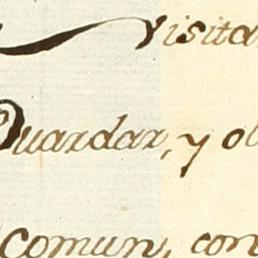 visita
Guardar, y ob
comun, con